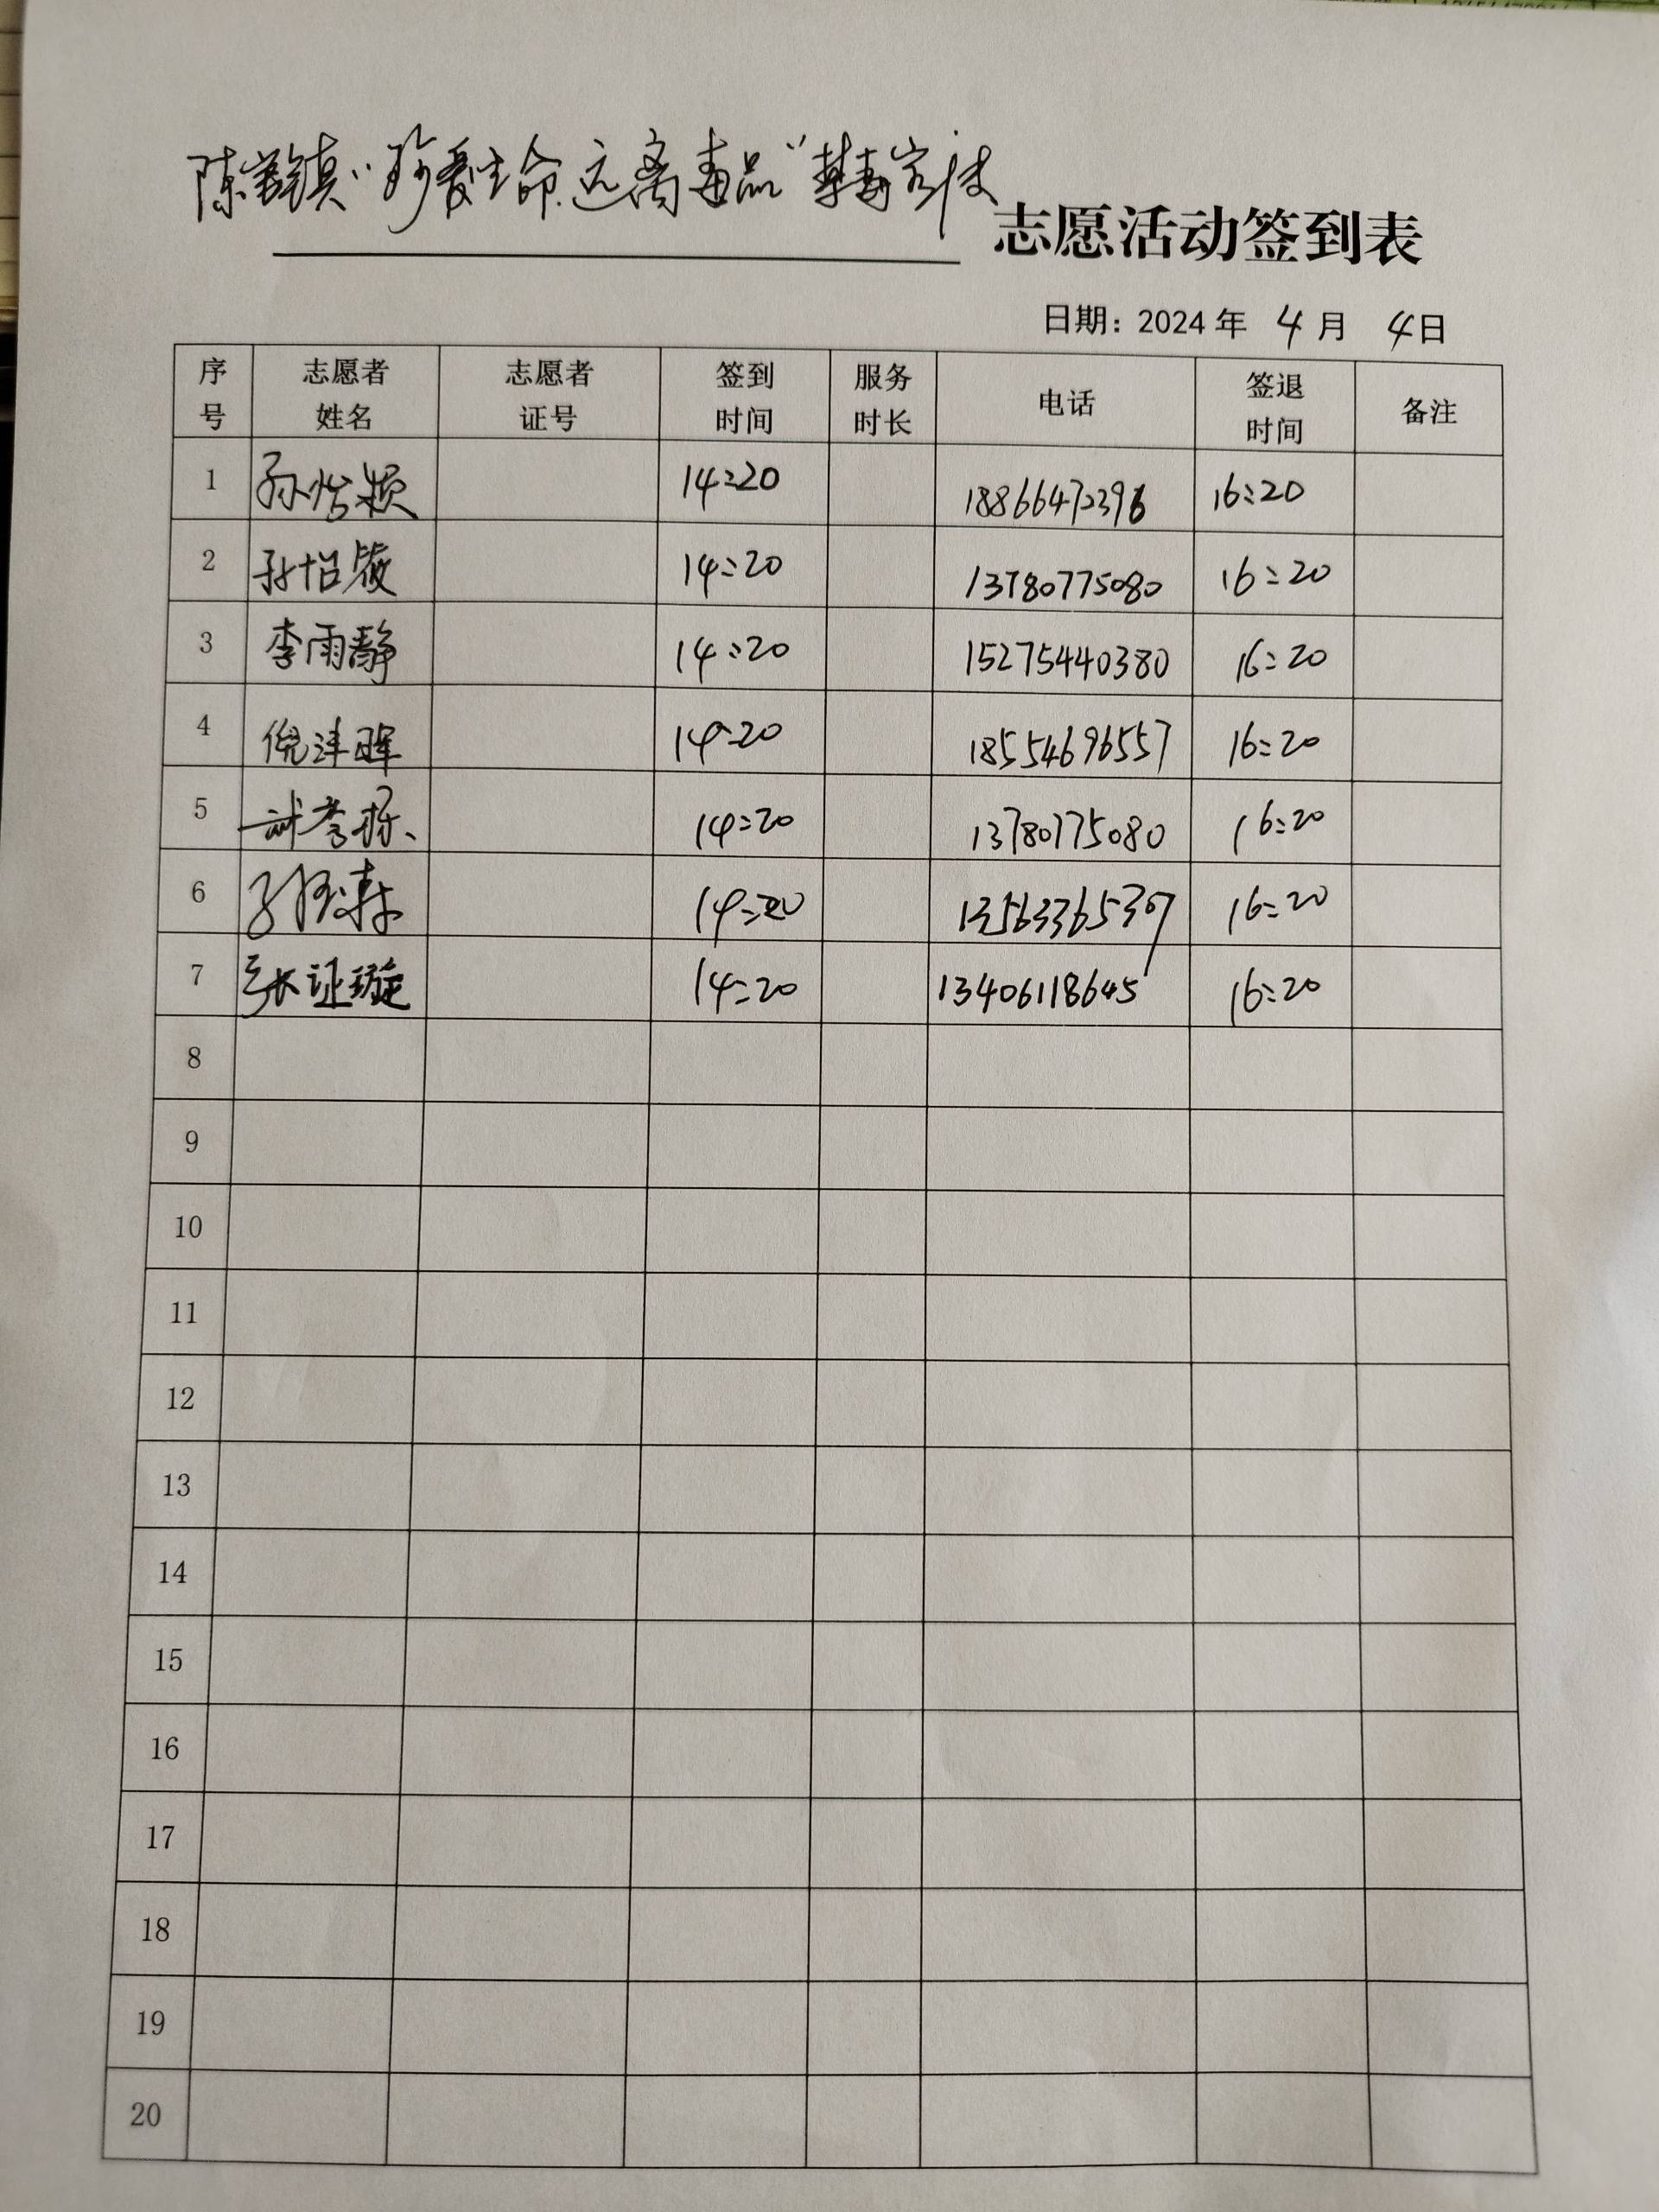 陈官镇“珍爱生命.远离毒品”禁毒宣传
志愿活动签到表
日期：2024年 4月 4日
序号 志愿者姓名 志愿者证号 签到时间 服务时长 电话 签退时间 备注
1 14:20 18866472396 16:20
2 孙怡筱 14:20 13780775080 16:20
3 李雨静 14:20 15275440380 16:20
4 倪沣晖 14:20 18554696557 16:20
5 14:20 13780775080 16:20
6 14:20 13563365307 16:20
7 张证璇 14:20 13406118645 16:20
8
9
10
11
12
13
14
15
16
17
18
19
20